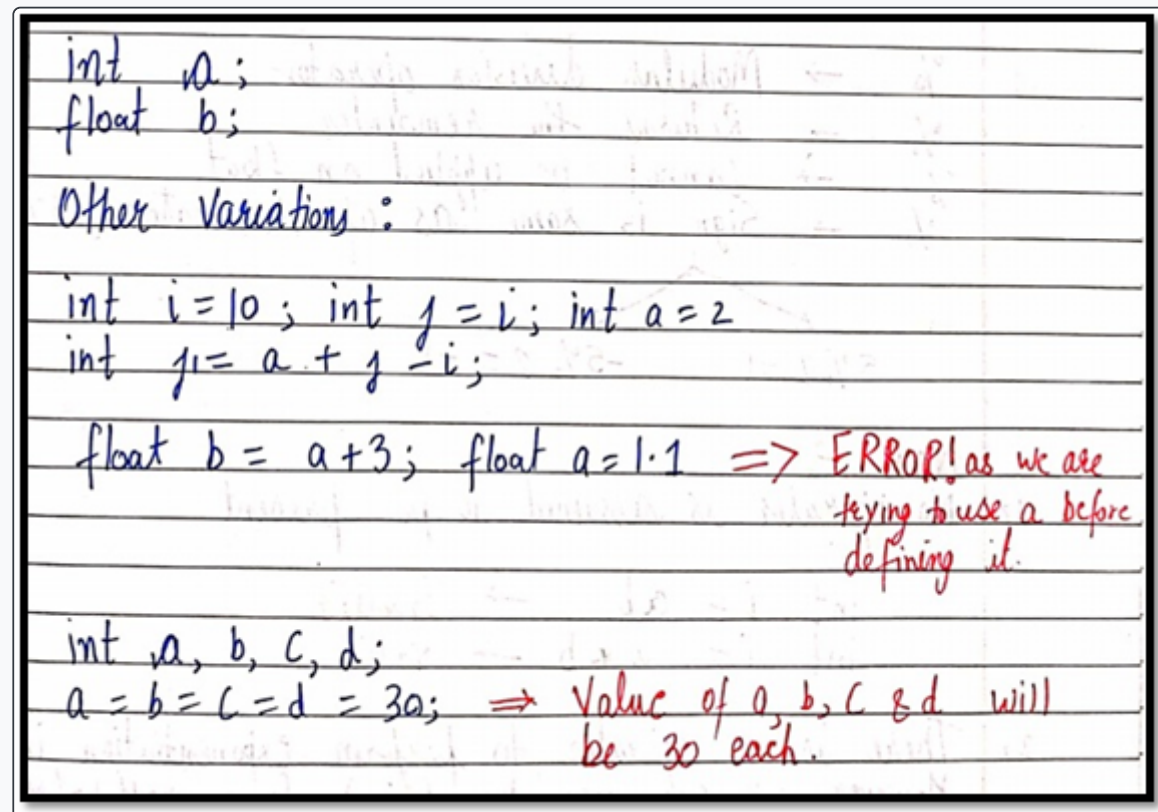 int a;
float b;
Other Variations :
int i = 10 ; int j = i ; int a = 2
int j1 = a + j - i ;
float b = a+3 ; float a = 1.1 => ERROR! as we are
trying to use a before
defining it.
int a, b, c, d;
a = b = c = d = 30; => Value of a, b, c & d will
be 30 each.